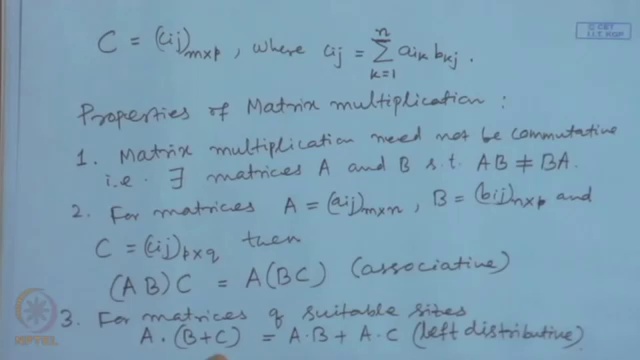 © CET
I.I.T. KGP
C = (cij)m×p, where cij = n∑k=1 aik bkj.
Properties of Matrix multiplication :
1. Matrix multiplication need not be commutative
i.e. ∃ matrices A and B s.t. AB ≠ BA.
2. For matrices A = (aij)m×n, B = (bij)n×p and
C = (cij)p×q then
(AB)C = A(BC) (associative)
3. For matrices of suitable sizes
A·(B+C) = A·B + A·C (left distributive)
NPTEL